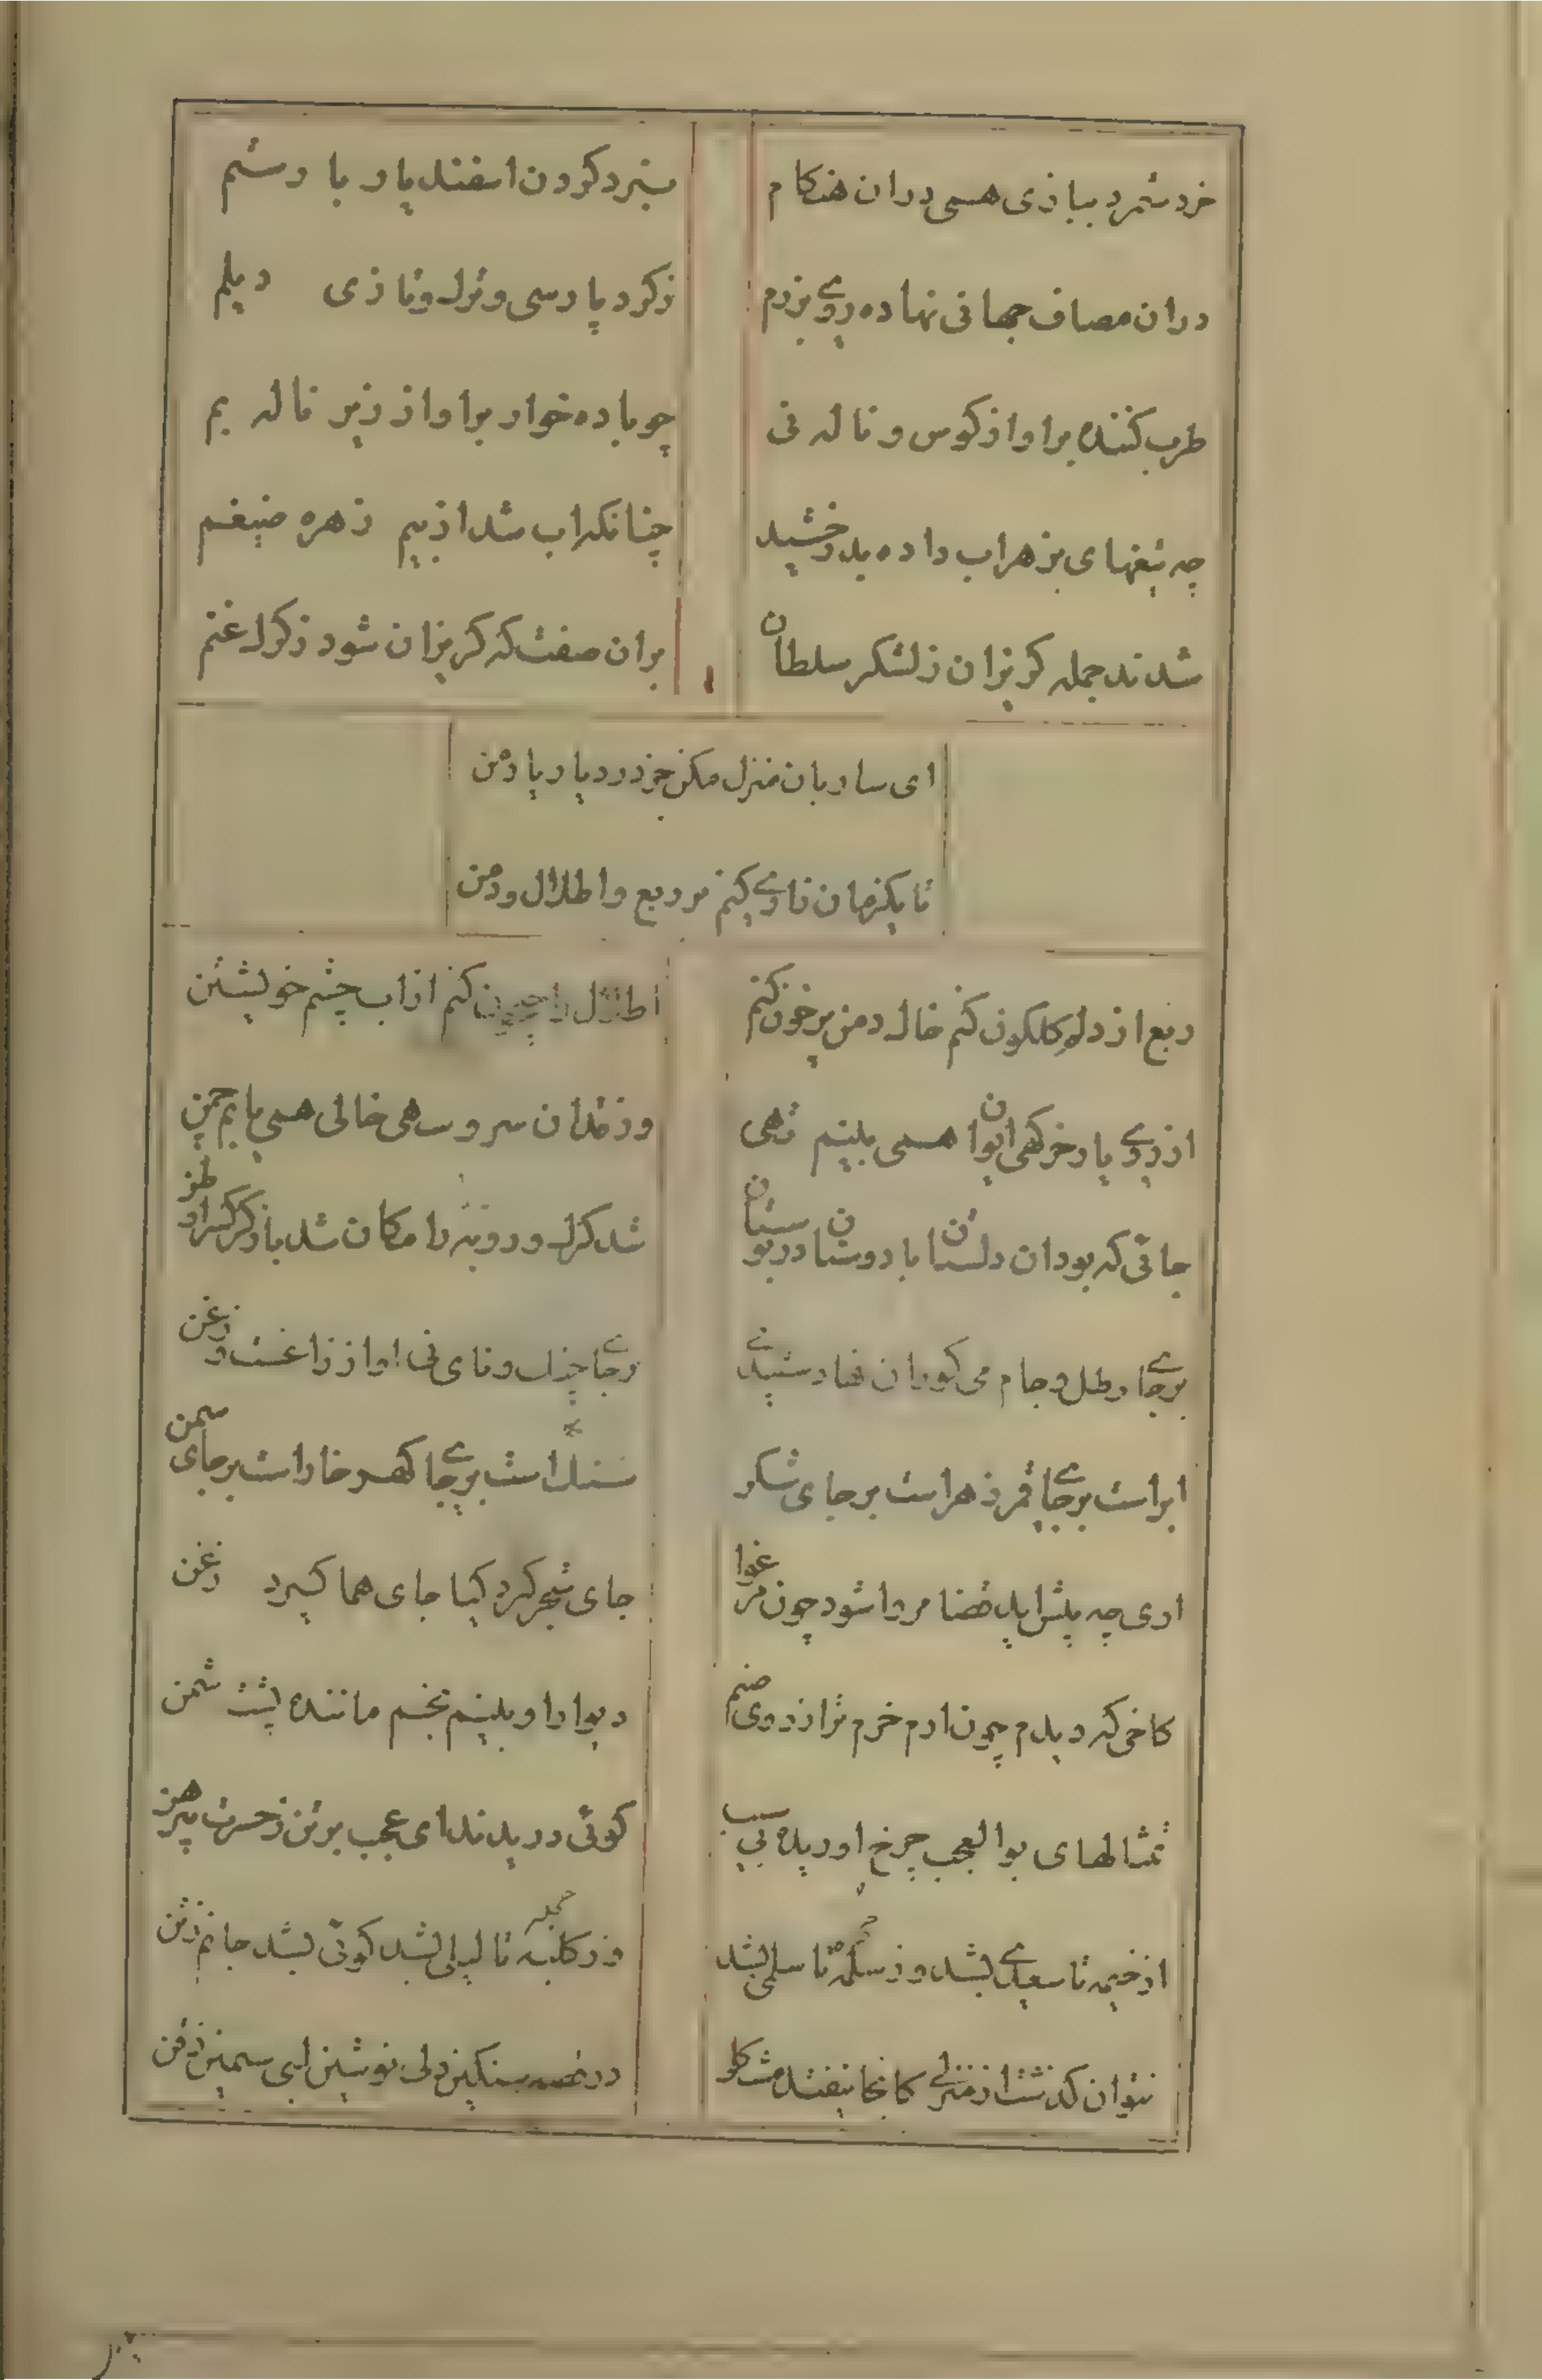 خرد شمرد ببازی همی دران هنکام
بنبرد کردن اسفندیار با رستم
دران مصاف جهانی نهاده روی برزم
ز کرد پارسی و ترک و تازی دیلم
طرب کننده براواز کوس و ناله نی
چو باده خوار براواز زیر ناله بم
چه تیغهای بزهراب داده بدرخشید
چنانکه اب شد از بیم زهره ضیغم
شدند جمله کریزان ز لشکر سلطان
بران صفت که کریزان شود ز کرک غنم
ای ساربان منزل مکن جز در دیار یار من
تا یکزمان زاری کنم بر ربع و اطلال و دمن
ربع از دلم کلکون کنم خاک دمن پرخون کنم
اطلال را جیحون کنم از اب چشم خویشتن
از روی یار خرکهی ایوان همی بینم تهی
وز قد ان سرو سهی خالی همی یابم چمن
جائی که بود ان دلستان با دوستان در بوستان
شد کرک و روبه را مکان شد باز کرکس را وطن
بر جای رطل و جام می کوران نهادستند پی
بر جای چنک و نای و نی اواز زاغست و زغن
ابر است بر جای قمر زهر است بر جای شکر
سنک است بر جای کهر خار است بر جای سمن
اری چه پیش اید قضا مروا شود چون مرغوا
جای شجر کیرد کیا جای هما کیرد زغن
کاخی که دیدم چون ارم خرم تر از روی صنم
دیوار او بینم بخم ماننده پشت شمن
تمثالهای بوالعجب چرخ اوریده بی سبب
کوئی دریدند ای عجب بر تن ز حسرت پیرهن
از خیمه تا سعدی بشد وز سلمه تا سلمی بشد
وز کلبه حجله تا لیلی بشد کوئی بشد جانم ز تن
نتوان کذشت از منزلی کانجا نیفتد مشکلو
در سنکین دلی نوشین لبی سیمین ذقن